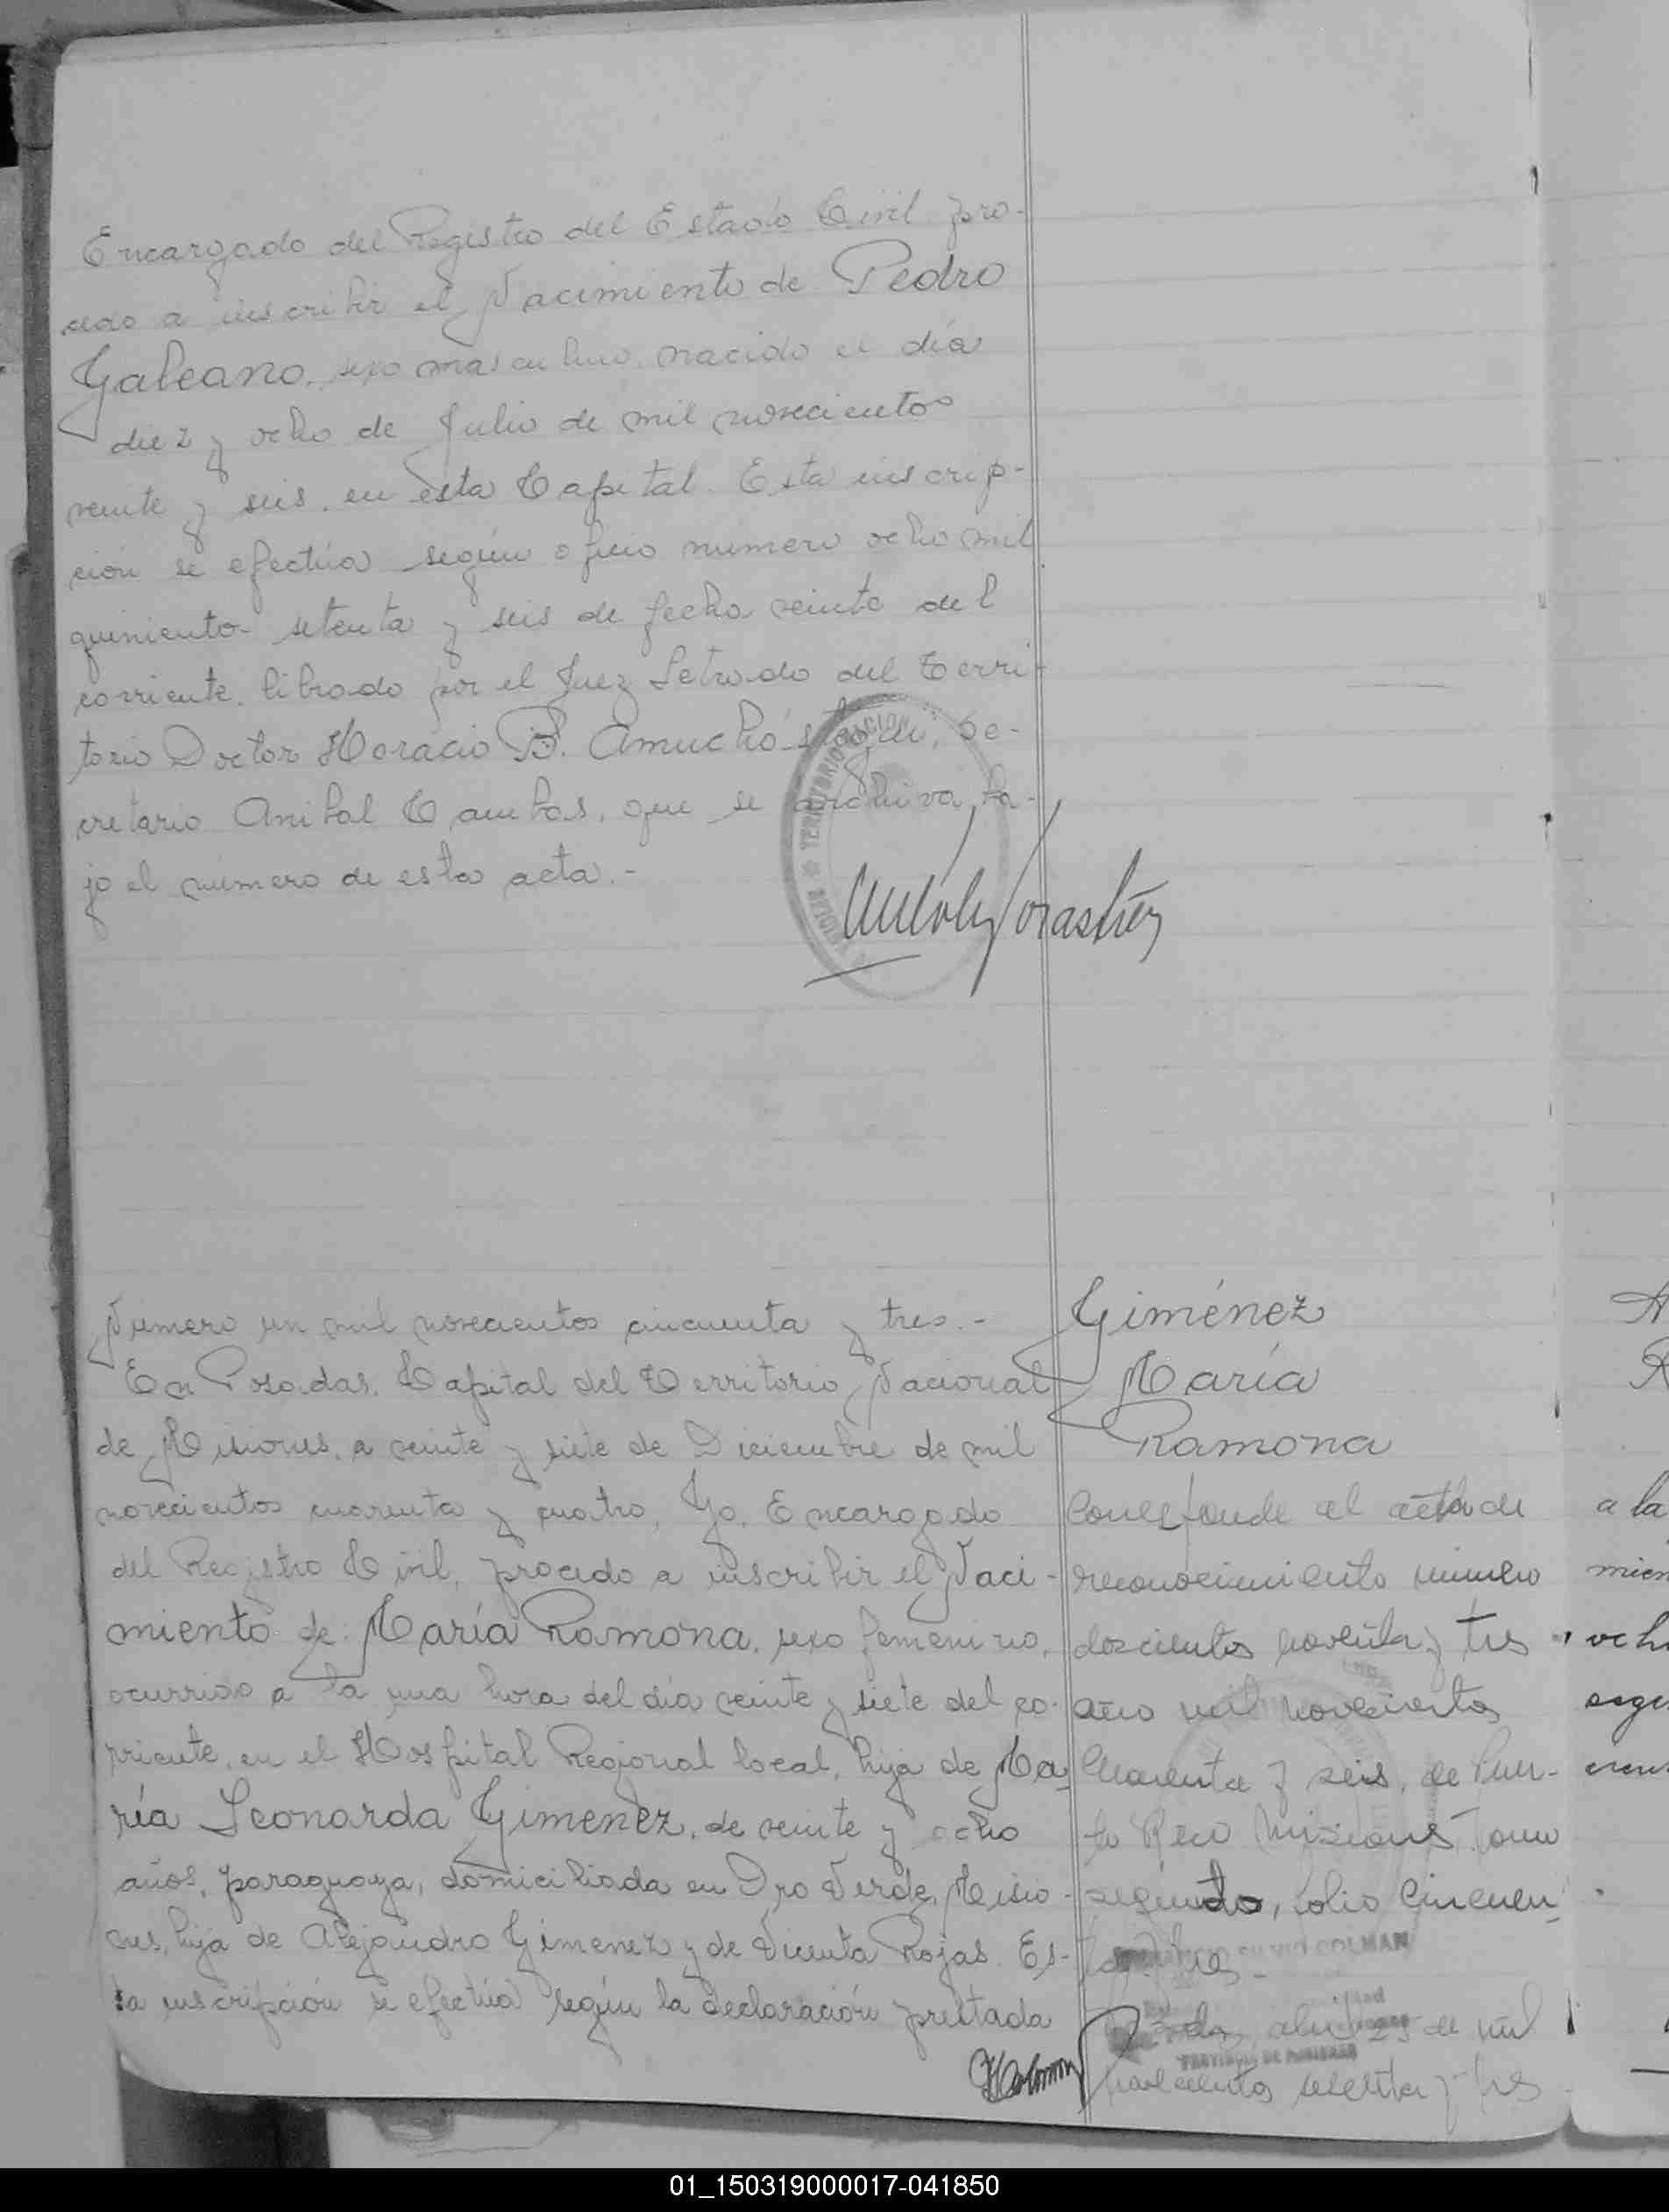 Encargado del Registro del Estado Civil pro-
cedo a inscribir el Nacimiento de Pedro
Galeano, sexo masculino, nacido el día
diez y ocho de Julio de mil novecientos
veinte y seis, en esta Capital. Esta inscrip-
ción se efectúa según oficio número ocho mil
quiniento setenta y seis de fecha veinte del
corriente, librado por el Juez Letrado del Terri-
torio Doctor Horacio B. Amuchástegui, Se-
cretario Anibal Cambas, que se archiva ba-
jo el número de esta acta.-
TERRITORIO
Número un mil novecientos cincuenta y tres.-
En Posadas, Capital del Territorio Nacional
de Misiones, a veinte y siete de Diciembre de mil
novecientos cuarenta y cuatro, Yo, Encargado
del Registro Civil, procedo a inscribir el Naci-
miento de: María Ramona, sexo femenino,
ocurrido a la una hora del día veinte y siete del co-
rriente, en el Hospital Regional local, hija de Ma-
ría Leonarda Gimenez, de veinte y ocho
años, paraguaya, domiciliada en Oro Verde, Misio-
nes, hija de Alejandro Gimenez y de Vicenta Rojas. Es-
ta inscripción se efectúa según la declaración prestada
Giménez
María
Ramona
Corresponde al acta de
reconocimiento número
doscientos noventa y tres
año mil novecientos
cuarenta y seis, de Puer-
to Rico Misiones, Tomo
segundo, folio Cincuen-
ta y tres.-
COLMAN
Posadas, abril 25 de mil
PROVINCIA DE MISIONES
novecientos sesenta y tres
a la
mien
ocho
01_150319000017-041850